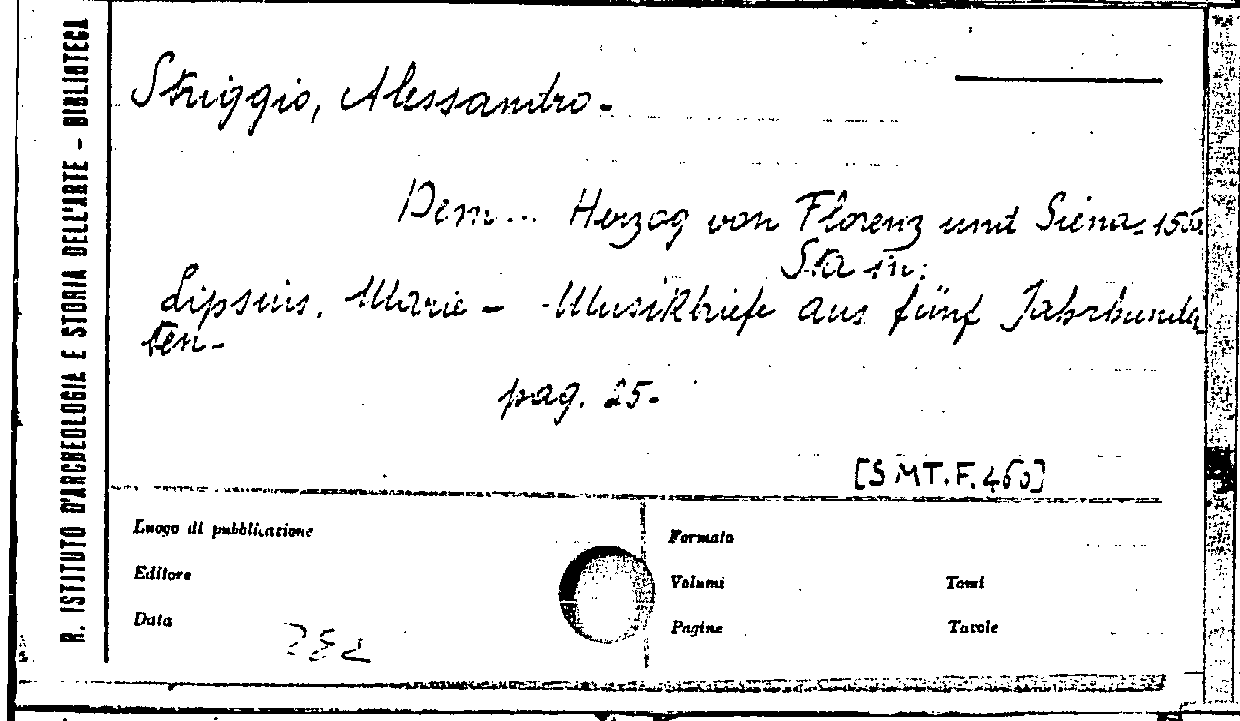 R. ISTITUTO D'ARCHEOLOGIA E STORIA DELL'ARTE - BIBLIOTECA
Striggio, Alessandro.
Dem... Herzog von Florenz und Siena.
Sta in:
Lipsius, Marie - Musikbriefe aus fünf Jahrhunder
ten.
pag. 25.
[SMT.F.460]
Luogo di pubblicazione
Formato
Editore
Volumi
Tomi
Data
Pagine
Tavole